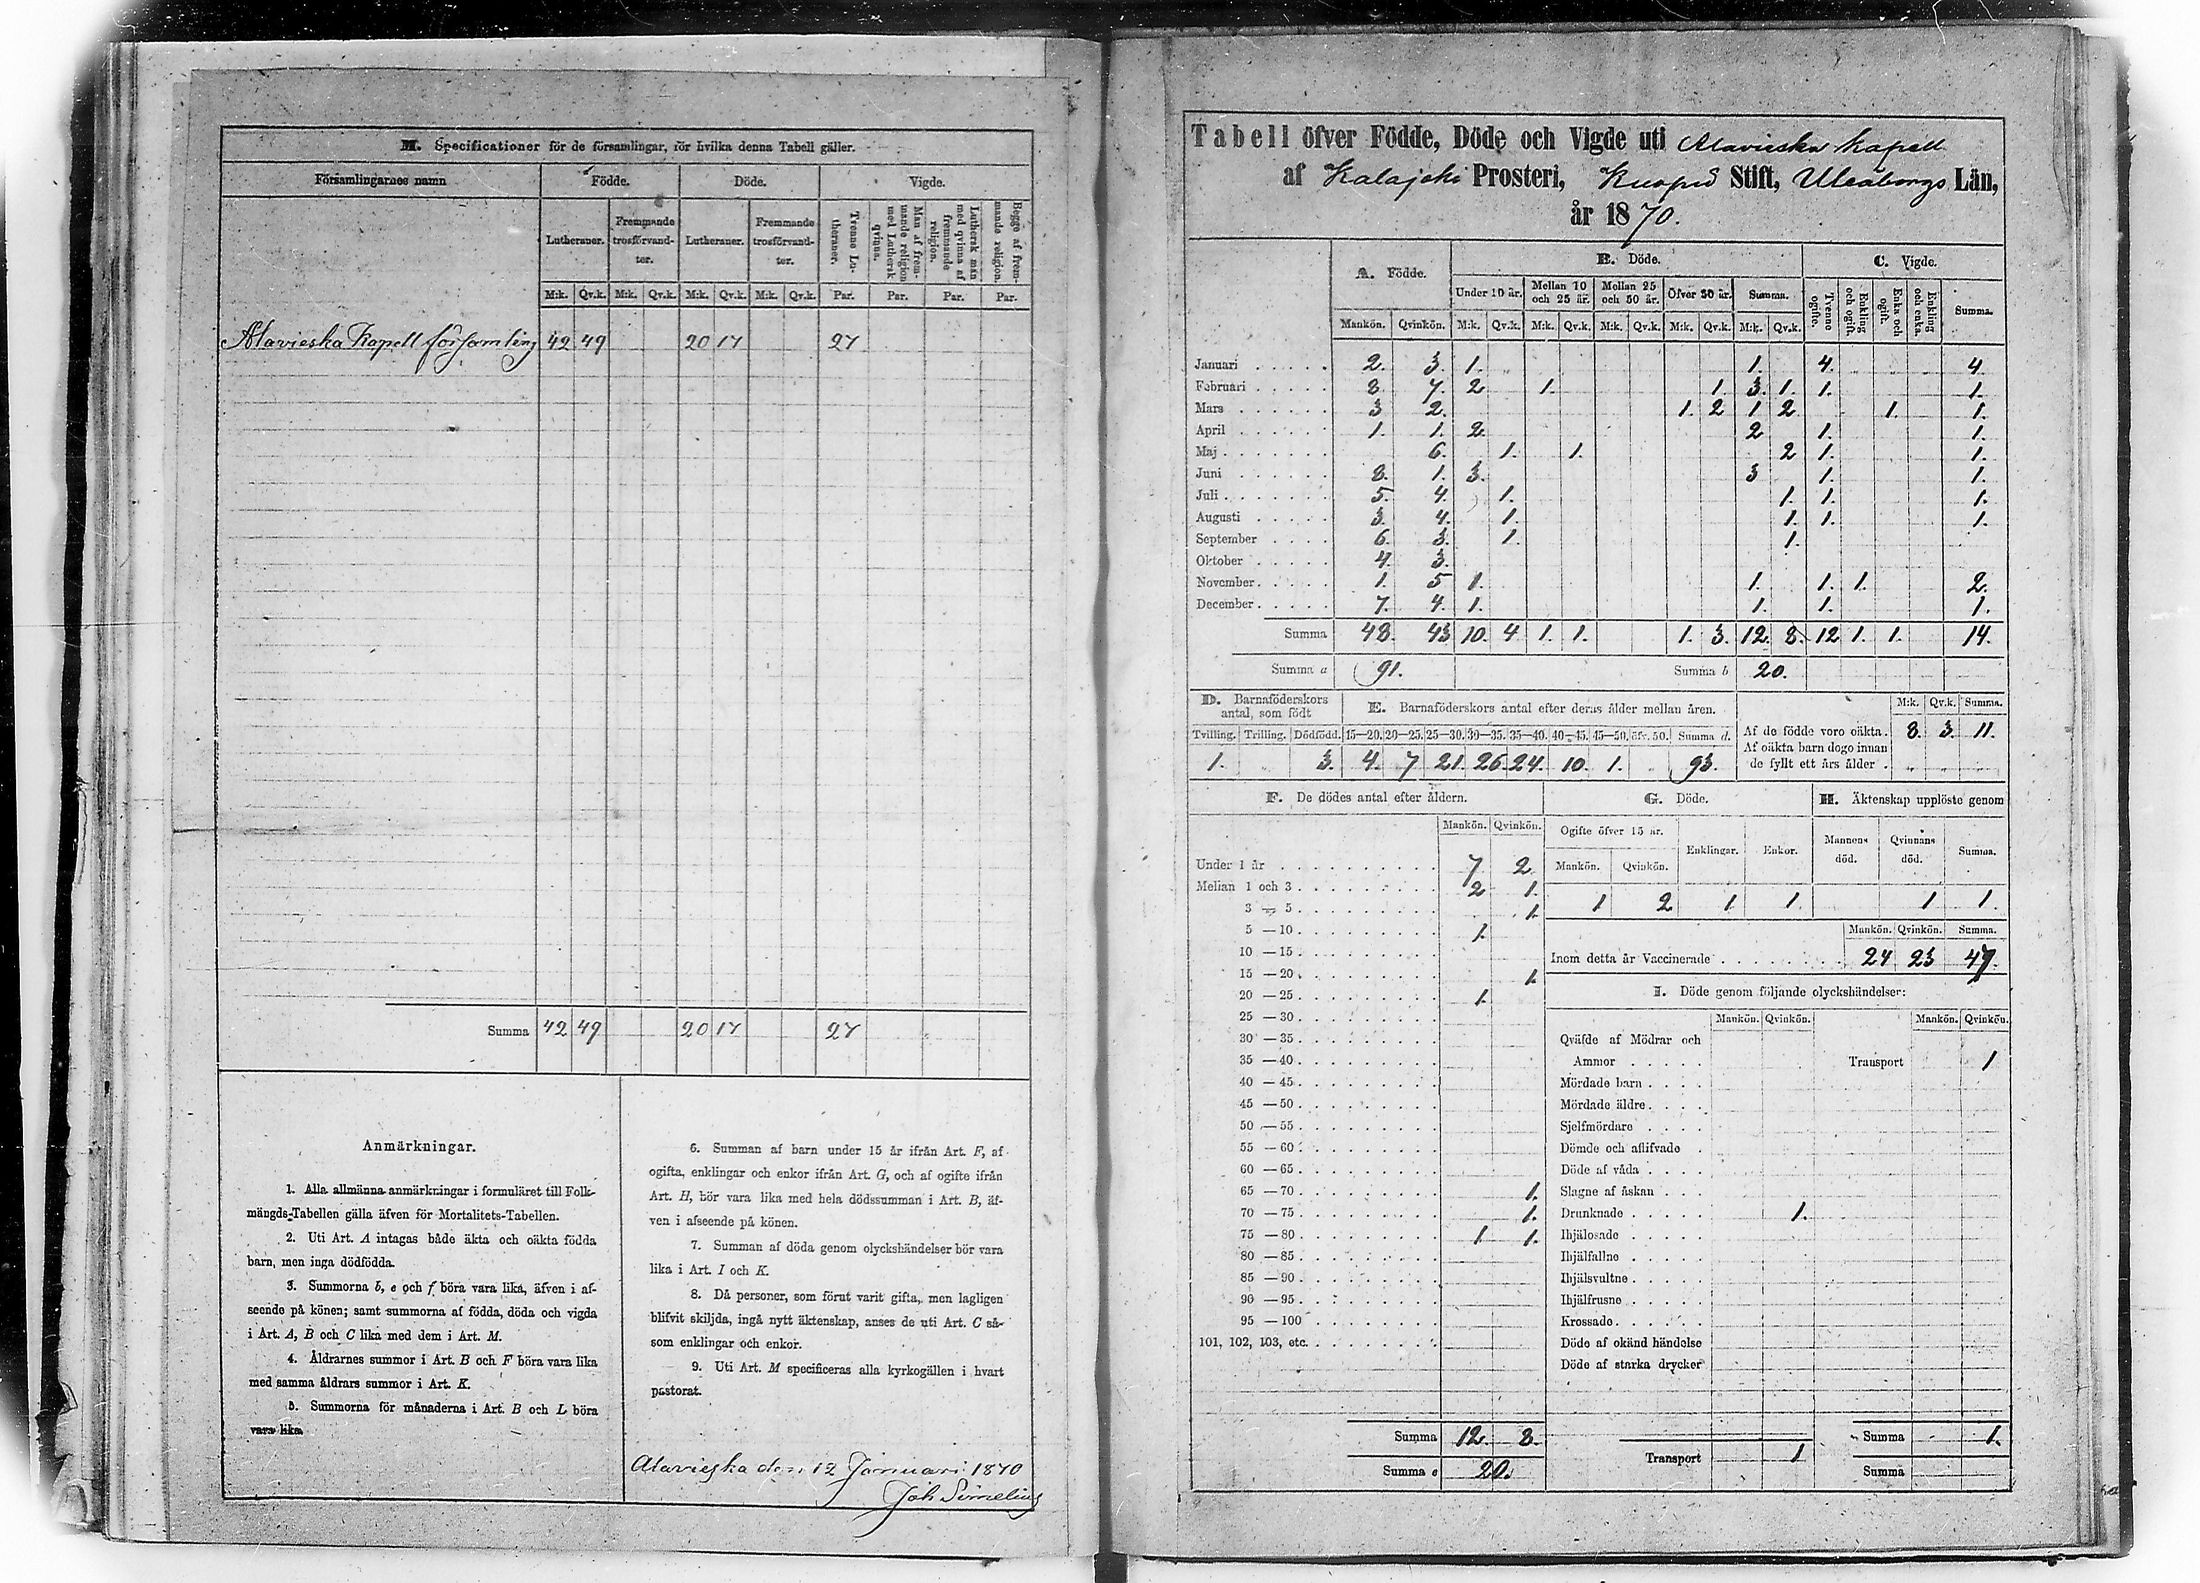 M. Specificationer för de församlingar, för hvilka denna Tabell gäller.
Församlingarnes namn Födde. Döde. Vigde.
Lutheraner. Fremmande trosförvandter. Lutheraner. Fremmande trosförvandter. Tvenne Lutheraner. Man af fremmande religion med Luthersk qvinna. Luthersk man med qvinna af fremmande religion. Begge af fremmande religion.
M:k. Qv.k. M:k. Qv.k. M:k. Qv.k. M:k. Qv.k. Par. Par. Par. Par.
Alavieska Kapell församling 42 49 20 17 27
Summa 42 49 20 17 27
Anmärkningar.
1. Alla allmänna anmärkningar i formuläret till Folk-
mängds-Tabellen gälla äfven för Mortalitets-Tabellen.
2. Uti Art. A intagas både äkta och oäkta födda
barn, men inga dödfödda.
3. Summorna b, e och f böra vara lika, äfven i af-
seende på könen; samt summorna af födda, döda och vigda
i Art. A, B och C lika med dem i Art. M.
4. Åldrarnes summor i Art. B och F böra vara lika
med samma åldrars summor i Art. K.
5. Summorna för månaderna i Art. B och L böra
vara lika.
6. Summan af barn under 15 år ifrån Art. F, af
ogifta, enklingar och enkor ifrån Art. G, och af ogifte ifrån
Art. H, bör vara lika med hela dödssumman i Art. B, äf-
ven i afseende på könen.
7. Summan af döda genom olyckshändelser bör vara
lika i Art. I och K.
8. Då personer, som förut varit gifta, men lagligen
blifvit skiljda, ingå nytt äktenskap, anses de uti Art. C så-
som enklingar och enkor.
9. Uti Art. M specificeras alla kyrkogällen i hvart
pastorat.
Alavieska den 12 Januari 1870
Joh Simelius
Tabell öfver Födde, Döde och Vigde uti Alavieska Kapell
af Kalajoki Prosteri, Kuopio Stift, Uleåborgs Län,
år 1870.
A. Födde. B. Döde. C. Vigde.
Under 10 år. Mellan 10 och 25 år. Mellan 25 och 50 år. Öfver 50 år. Summa. Tvenne ogifte. Enkling och ogift. Enka och ogift. Enkling och enka. Summa.
Mankön. Qvinkön. M:k. Qv.k. M:k. Qv.k. M:k. Qv.k. M:k. Qv.k. M:k. Qv.k.
Januari 2. 3. 1. 1. 4. 4
Februari 8. 7. 2 1. 1. 3. 1. 1. 1.
Mars 3 2. 1. 2 1 2 1. 1.
April 1. 1. 2. 2 1. 1.
Maj 6. 1. 1. 2 1. 1.
Juni 8. 1. 3. 3 1. 1.
Juli 5. 4. 1. 1. 1. 1.
Augusti 3. 4. 1. 1. 1. 1.
September 6. 3. 1. 1.
Oktober 4. 3.
November 1. 5 1. 1. 1. 1. 2.
December 7. 4. 1. 1. 1. 1.
Summa 48. 43 10. 4 1. 1. 1. 3. 12. 8. 12 1. 1. 14.
Summa a 91. Summa b 20.
D. Barnaföderskors antal, som födt
E. Barnaföderskors antal efter deras ålder mellan åren.
M:k. Qv.k. Summa.
Tvilling. Trilling. Dödfödd. 15—20. 20—25. 25—30. 30—35. 35—40. 40—45. 45—50. öfv. 50. Summa d.
1. 3. 4. 7 21. 26. 24. 10. 1. 93.
Af de födde voro oäkta. 8. 3. 11.
Af oäkta barn dogo innan
de fyllt ett års ålder .
F. De dödes antal efter åldern.
Mankön. Qvinkön.
Under 1 år 7 2
Mellan 1 och 3 2 1.
3 — 5 1.
5 — 10 1.
10 — 15
15 — 20 1.
20 — 25 1.
25 — 30
30 — 35
35 — 40
40 — 45
45 — 50
50 — 55
55 — 60
60 — 65
65 — 70 1.
70 — 75 1.
75 — 80 1 1.
80 — 85
85 — 90
90 — 95
95 — 100
101, 102, 103, etc.
Summa 12. 8.
Summa e 20.
G. Döde.
Ogifte öfver 15 år. Enklingar. Enkor.
Mankön. Qvinkön.
1 2 1 1.
H. Äktenskap upplöste genom
Mannens död. Qvinnans död. Summa.
1 1.
Mankön. Qvinkön. Summa.
Inom detta år Vaccinerade 24 23 47.
I. Döde genom följande olyckshändelser:
Mankön. Qvinkön. Mankön. Qvinkön.
Qväfde af Mödrar och
Ammor Transport 1
Mördade barn
Mördade äldre
Sjelfmördare
Dömde och aflifvade
Döde af våda
Slagne af åskan
Drunknade 1.
Ihjälosade
Ihjälfallne
Ihjälsvultne
Ihjälfrusne
Krossade
Döde af okänd händelse
Döde af starka drycker
Summa 1.
Transport 1
Summa